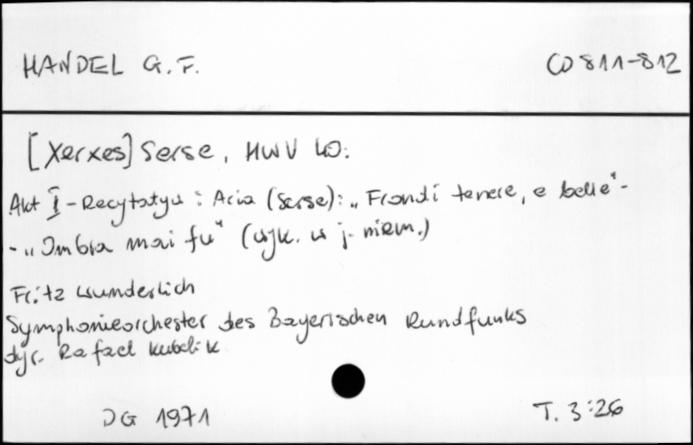 HANDEL G.F. CD 811-812
[Xerxes] Serse, HWV 40:
Akt I - Recytatyw i Aria (Serse): „Frondi tenere, e belle"-
- „Ombra mai fu" (wyk. w j. niem.)
Fritz Wunderlich
Symphonieorchester des Bayerischen Rundfunks
dyr. Rafael Kubelik
DG 1971 T. 3:26